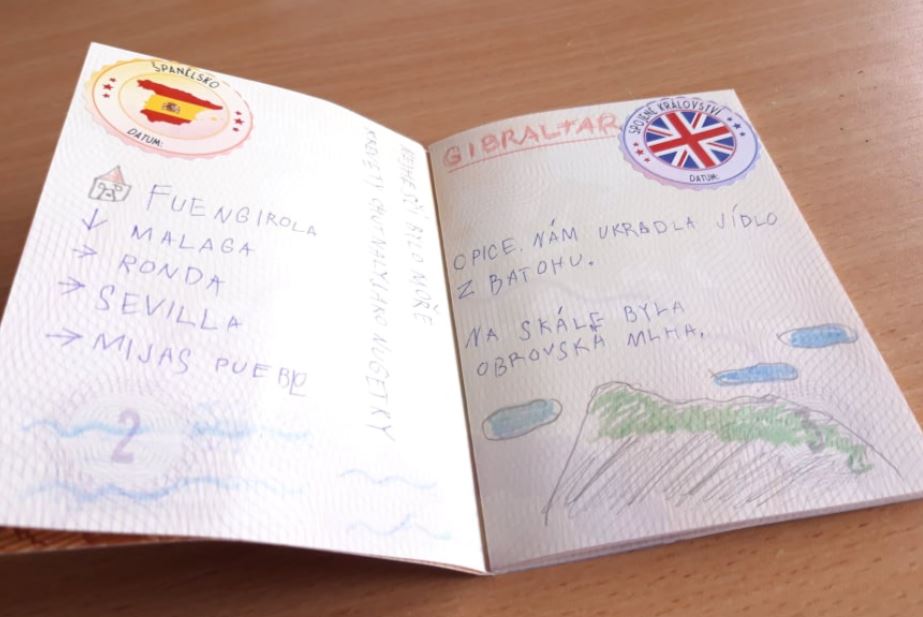 ŠPANĚLSKO
DATUM:
FUENGIROLA
MALAGA
RONDA
SEVILLA
MIJAS PUEBLO
NEJHEZČÍ BYLO MOŘE
KREVETY CHUTNALY JAKO NUGETKY
2
GIBRALTAR
SPOJENÉ KRÁLOVSTVÍ
DATUM:
OPICE NÁM UKRADLA JÍDLO
Z BATOHU.
NA SKÁLE BYLA
OBROVSKÁ MLHA.